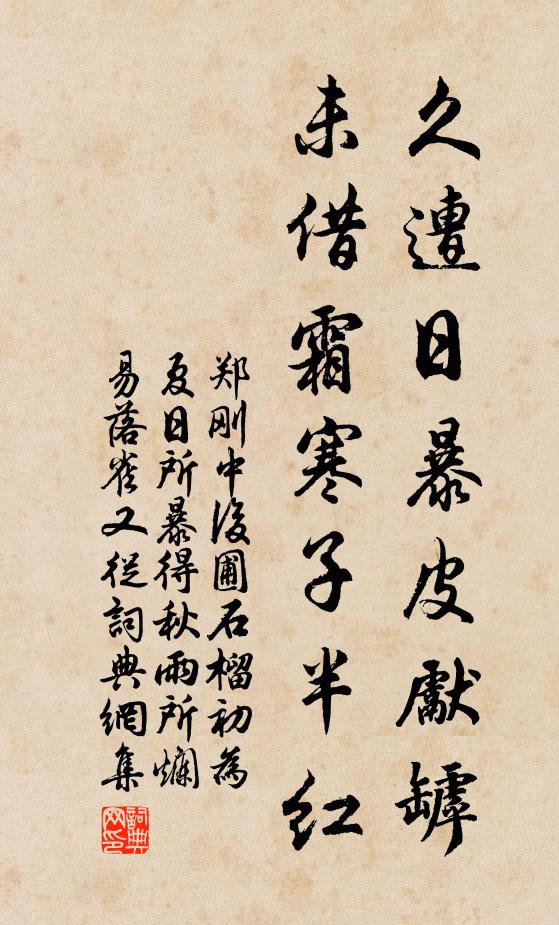 久遭日暴皮獻罅
未借霜寒子半紅
郑刚中後圃石榴初為
夏日所暴得秋雨所爛
易落雀又從詞典網集
詞典网印